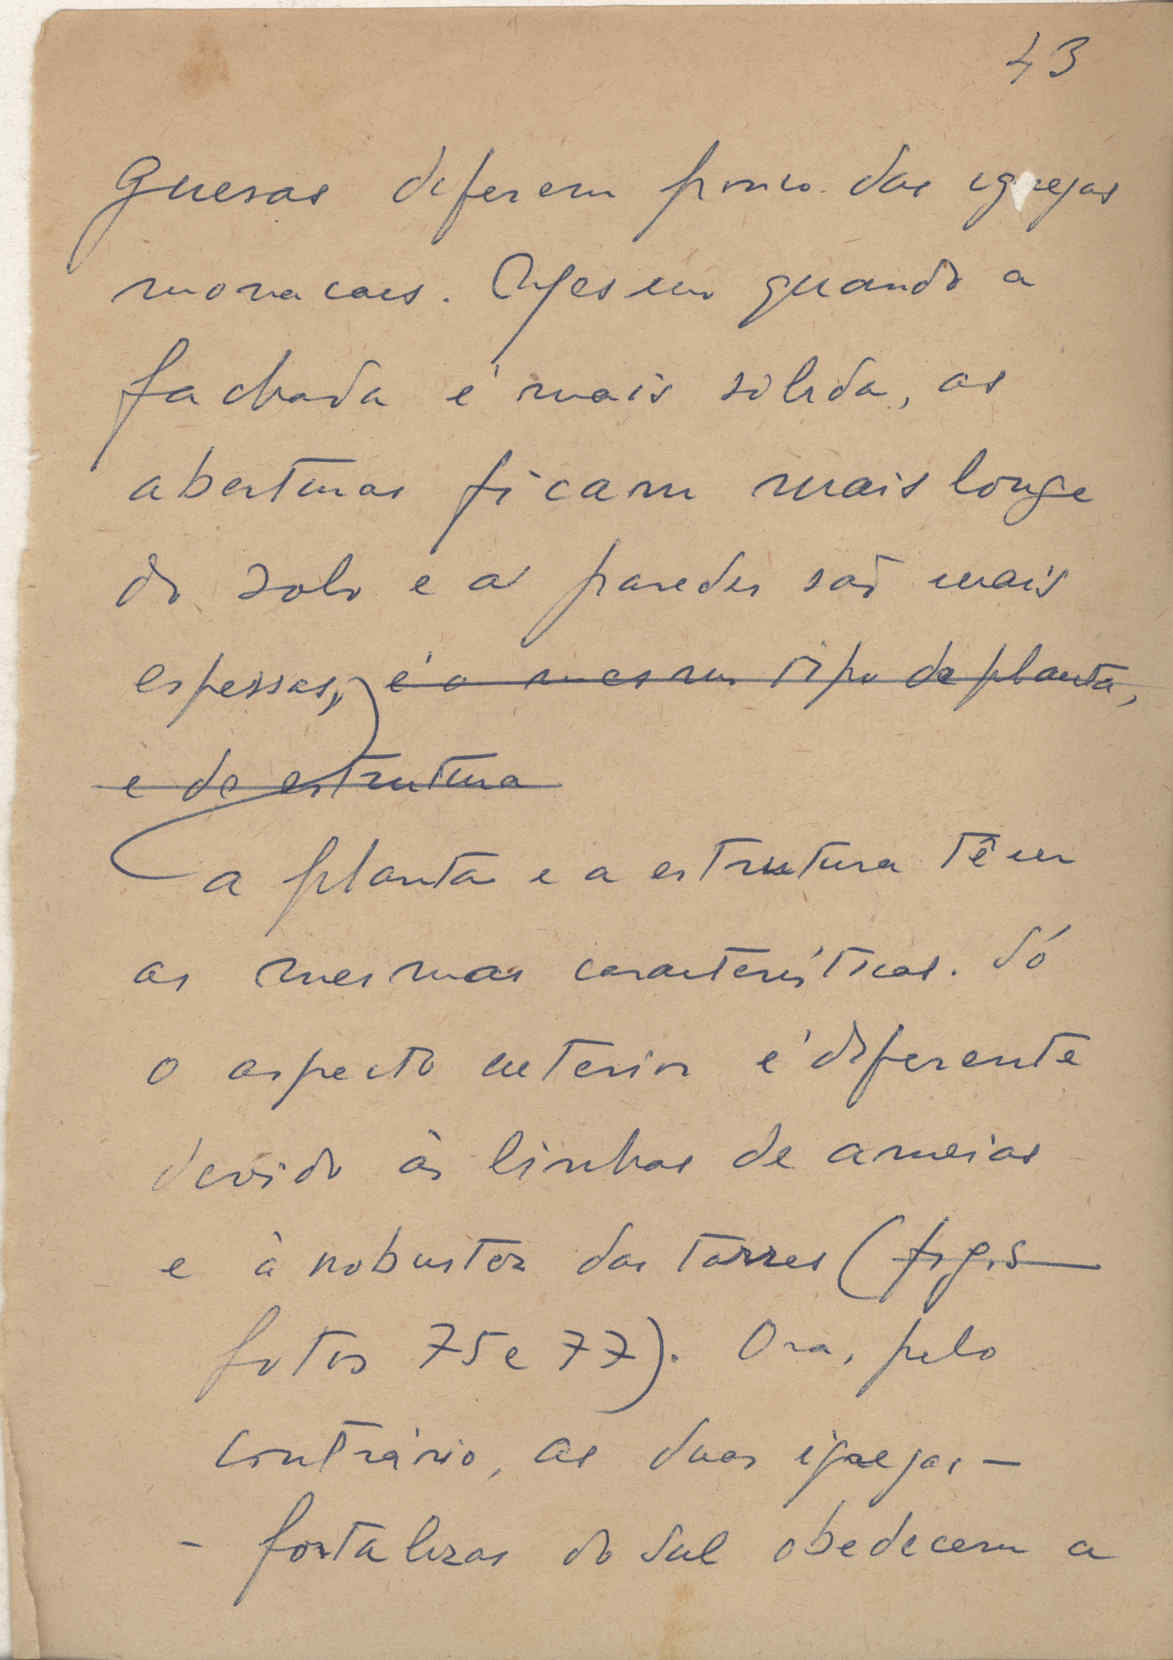 43
guesas diferem pouco das igrejas
monacais. Mesmo quando a
fachada é mais sólida, as
aberturas ficam mais longe
do solo e as paredes são mais
espessas, é o mesmo tipo de planta,
e de estrutura
a planta e a estrutura têm
as mesmas características. Só
o aspecto exterior é diferente
devido às linhas de ameias
e à robustez das torres (figs
fotos 75 e 77). Ora, pelo
contrário, as duas igrejas -
- fortalezas do Sul obedecem a